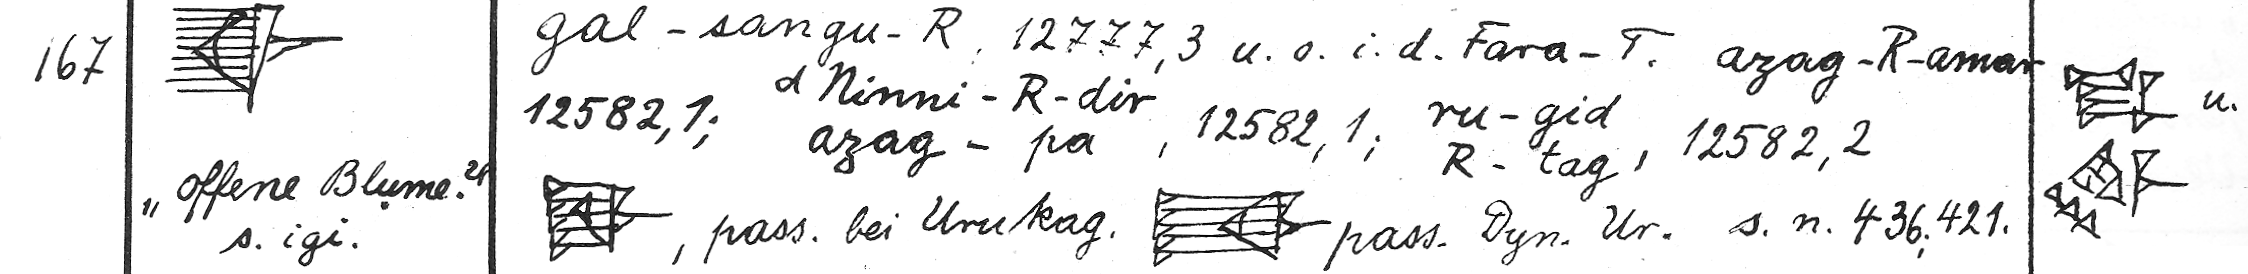 167
„offene Blume."
s. igi.
gal-sangu-R, 12777,3 u. o. i. d. Fara-T. azag-R-amar
12582,1; d Ninni-R-dir azag-pa, 12582,1; ru-gid R-tag, 12582,2
, pass. bei Urukag. pass. Dyn. Ur. s. n. 436,421.
u.